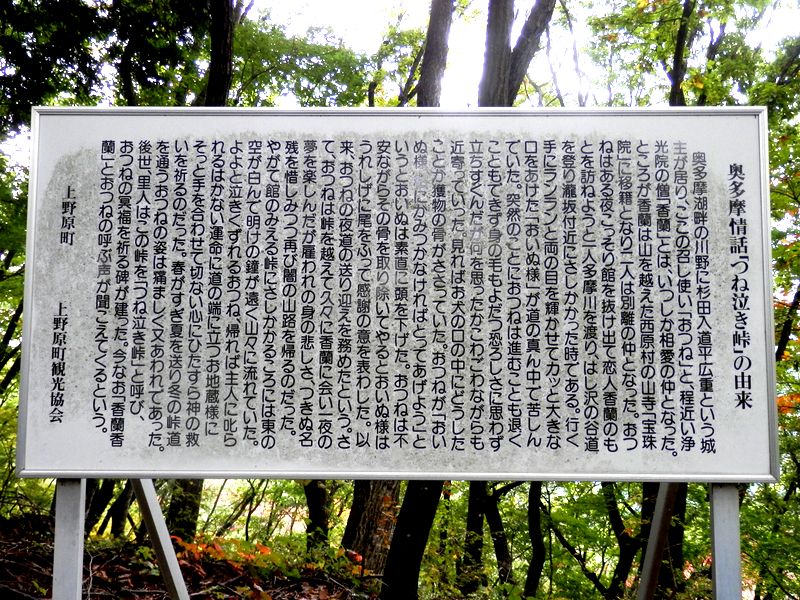 奥多摩情話「つね泣き峠」の由来
奥多摩湖畔の川野に杉田入道平広重という城
主が居り、ここの召し使い「おつね」と、程近い浄
光院の僧「香蘭」とは、いつしか相愛の仲となった。
ところが香蘭は山を越えた西原村の山寺「宝珠
院」に移籍となり二人は別離の仲となった。おつ
ねはある夜こっそり館を抜け出て恋人香蘭のも
とを訪ねようと一人多摩川を渡り、はし沢の谷道
を登り瀧坂付近にさしかかった時である。行く
手にランランと両の目を輝かせてカッと大きな
口をあけた「おいぬ様」が道の真ん中で苦しん
でいた。突然のことにおつねは進むことも退く
こともできず身の毛もよだつ恐ろしさに思わず
立ちすくんだが何を思ったかこわごわながらも
近寄っていった。見ればお犬の口の中にどうした
ことか獲物の骨がささっていた。おつねが「おい
ぬ様、私にかみつかなければとってあげよう」と
いうとおいぬは素直に頭を下げた。おつねは不
安ながらその骨を取り除いてやるとおいぬ様は
うれしげに尾をふって感謝の意を表わした。以
来、おつねの夜道の送り迎えを務めたという。さ
て、おつねは峠を越えて久々に香蘭に会い一夜の
夢を楽しんだが雇われの身の悲しさ、つきぬ名
残を惜しみつつ再び闇の山路を帰るのだった。
やがて館のみえる峠にさしかかるころには東の
空が白んで明けの鐘が遠く山々に流れていた。
よよと泣きくずれるおつね、帰れば主人に叱ら
れるはかない運命に道の端に立つお地蔵様に
そっと手を合わせて切ない心にひたすら神の救
いを祈るのだった。春がすぎ夏を送り冬の峠道
を通うおつねの姿は痛ましく又あわれであった。
後世、里人はこの峠を「つね泣き峠」と呼び、
おつねの冥福を祈る碑が建った。今なお「香蘭香
蘭」とおつねの呼ぶ声が聞こえてくるという。
上野原町
上野原町観光協会